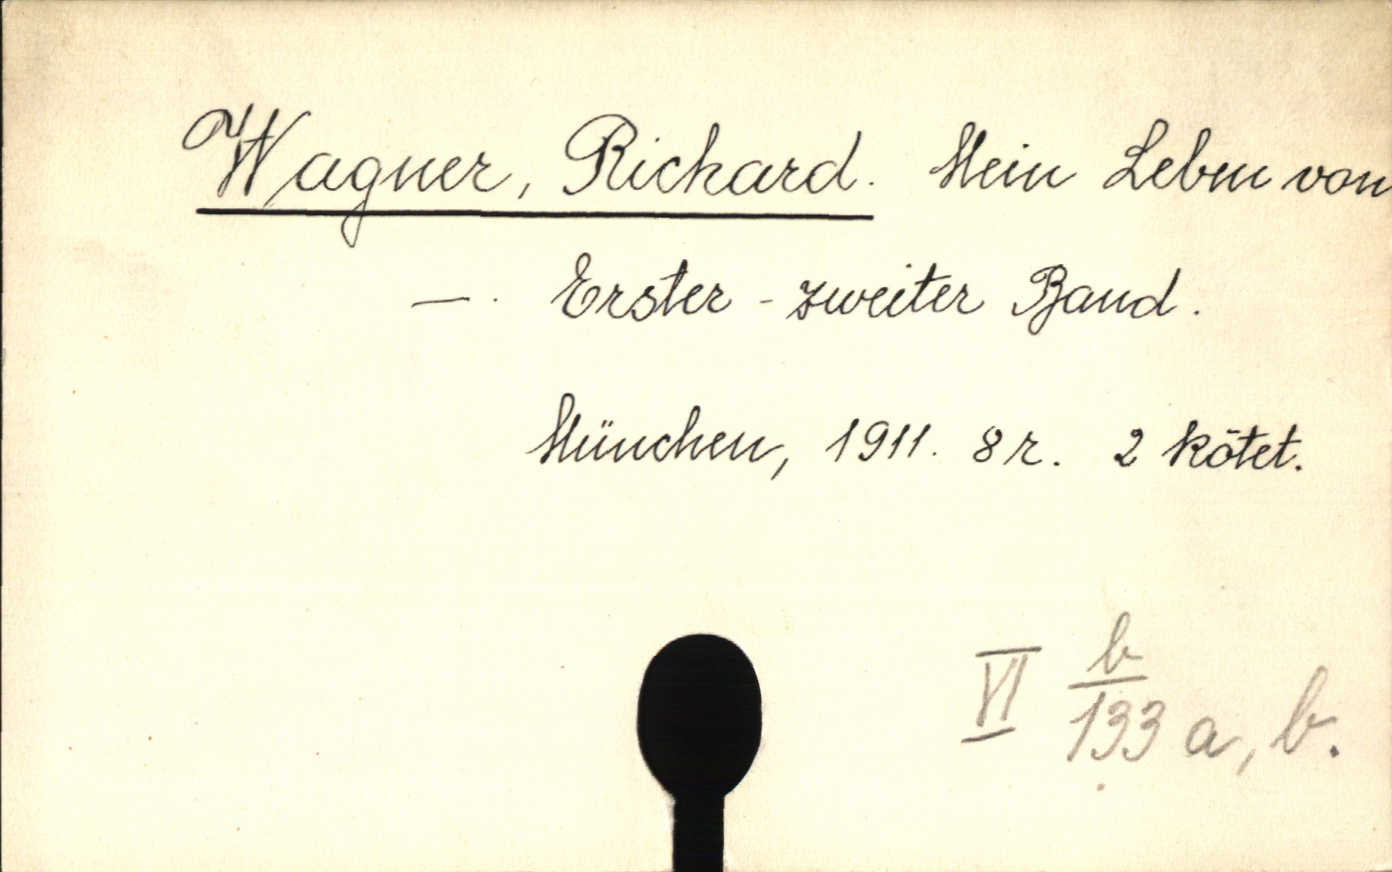 Wagner, Richard. Mein Leben von
—. Erster - zweiter Band.
München, 1911. 8r. 2 kötet.
VI b/133 a, b.